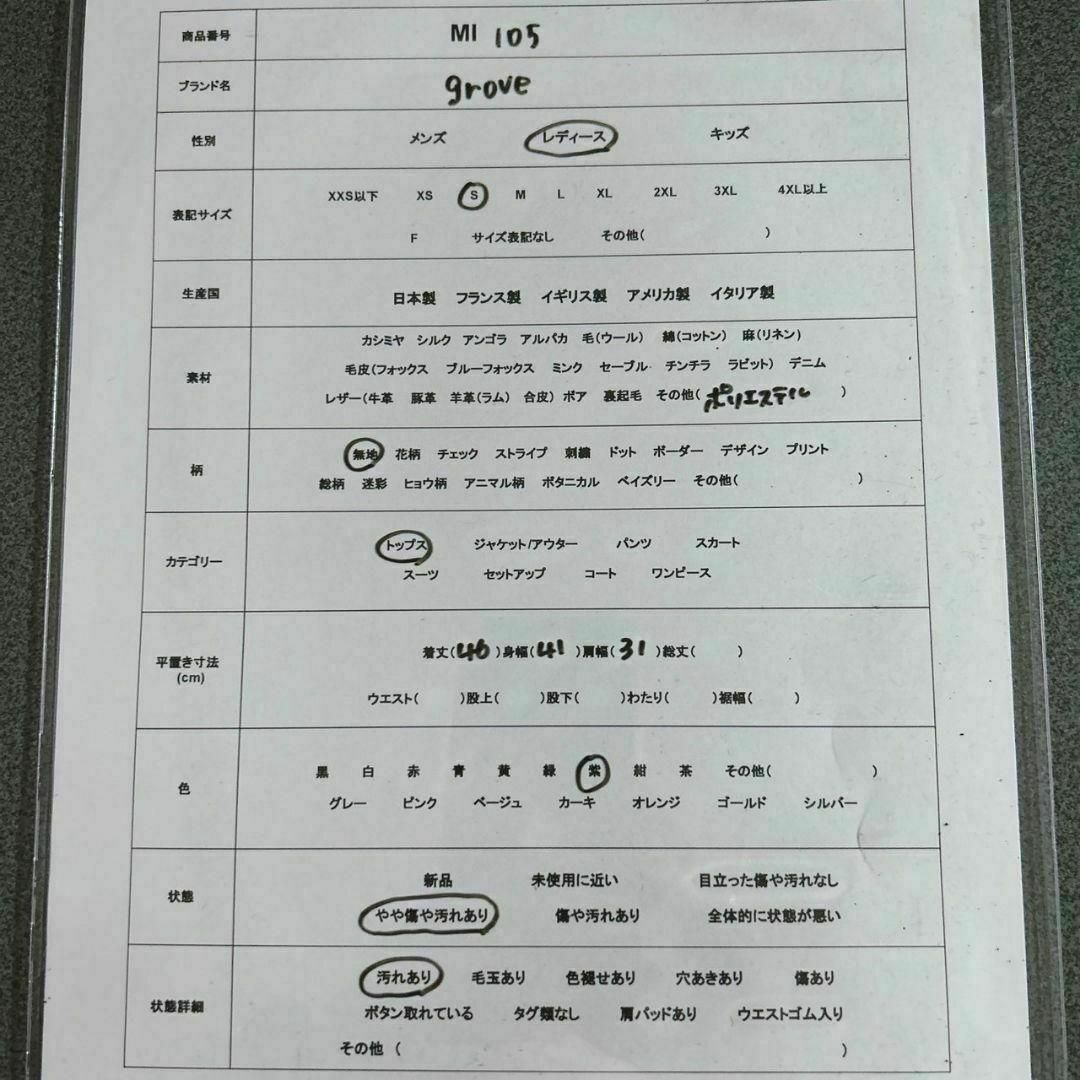 商品番号 MI 105
ブランド名 grove
性別 メンズ レディース キッズ
表記サイズ XXS以下 XS S M L XL 2XL 3XL 4XL以上
F サイズ表記なし その他( )
生産国 日本製 フランス製 イギリス製 アメリカ製 イタリア製
素材 カシミヤ シルク アンゴラ アルパカ 毛(ウール) 綿(コットン) 麻(リネン)
毛皮(フォックス ブルーフォックス ミンク セーブル チンチラ ラビット) デニム
レザー(牛革 豚革 羊革(ラム) 合皮) ボア 裏起毛 その他( ポリエステル )
柄 無地 花柄 チェック ストライプ 刺繍 ドット ボーダー デザイン プリント
総柄 迷彩 ヒョウ柄 アニマル柄 ボタニカル ペイズリー その他( )
カテゴリー トップス ジャケット/アウター パンツ スカート
スーツ セットアップ コート ワンピース
平置き寸法 (cm) 着丈( 46 )身幅( 41 )肩幅( 31 )総丈( )
ウエスト( )股上( )股下( )わたり( )裾幅( )
色 黒 白 赤 青 黄 緑 紫 紺 茶 その他( )
グレー ピンク ベージュ カーキ オレンジ ゴールド シルバー
状態 新品 未使用に近い 目立った傷や汚れなし
やや傷や汚れあり 傷や汚れあり 全体的に状態が悪い
状態詳細 汚れあり 毛玉あり 色褪せあり 穴あきあり 傷あり
ボタン取れている タグ類なし 肩パッドあり ウエストゴム入り
その他 ( )